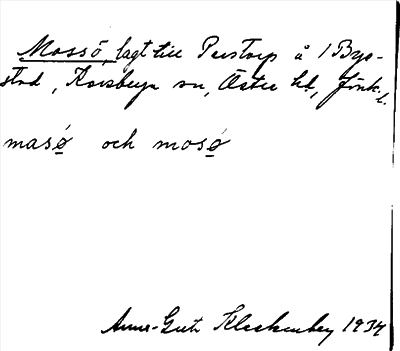 Mossö, lagt till Perstorp å 1 Byg-
stad, Korsberga sn, Östra hd, Jönk. l.
masø och mosø
Anna-Greta Kleckenberg 1934